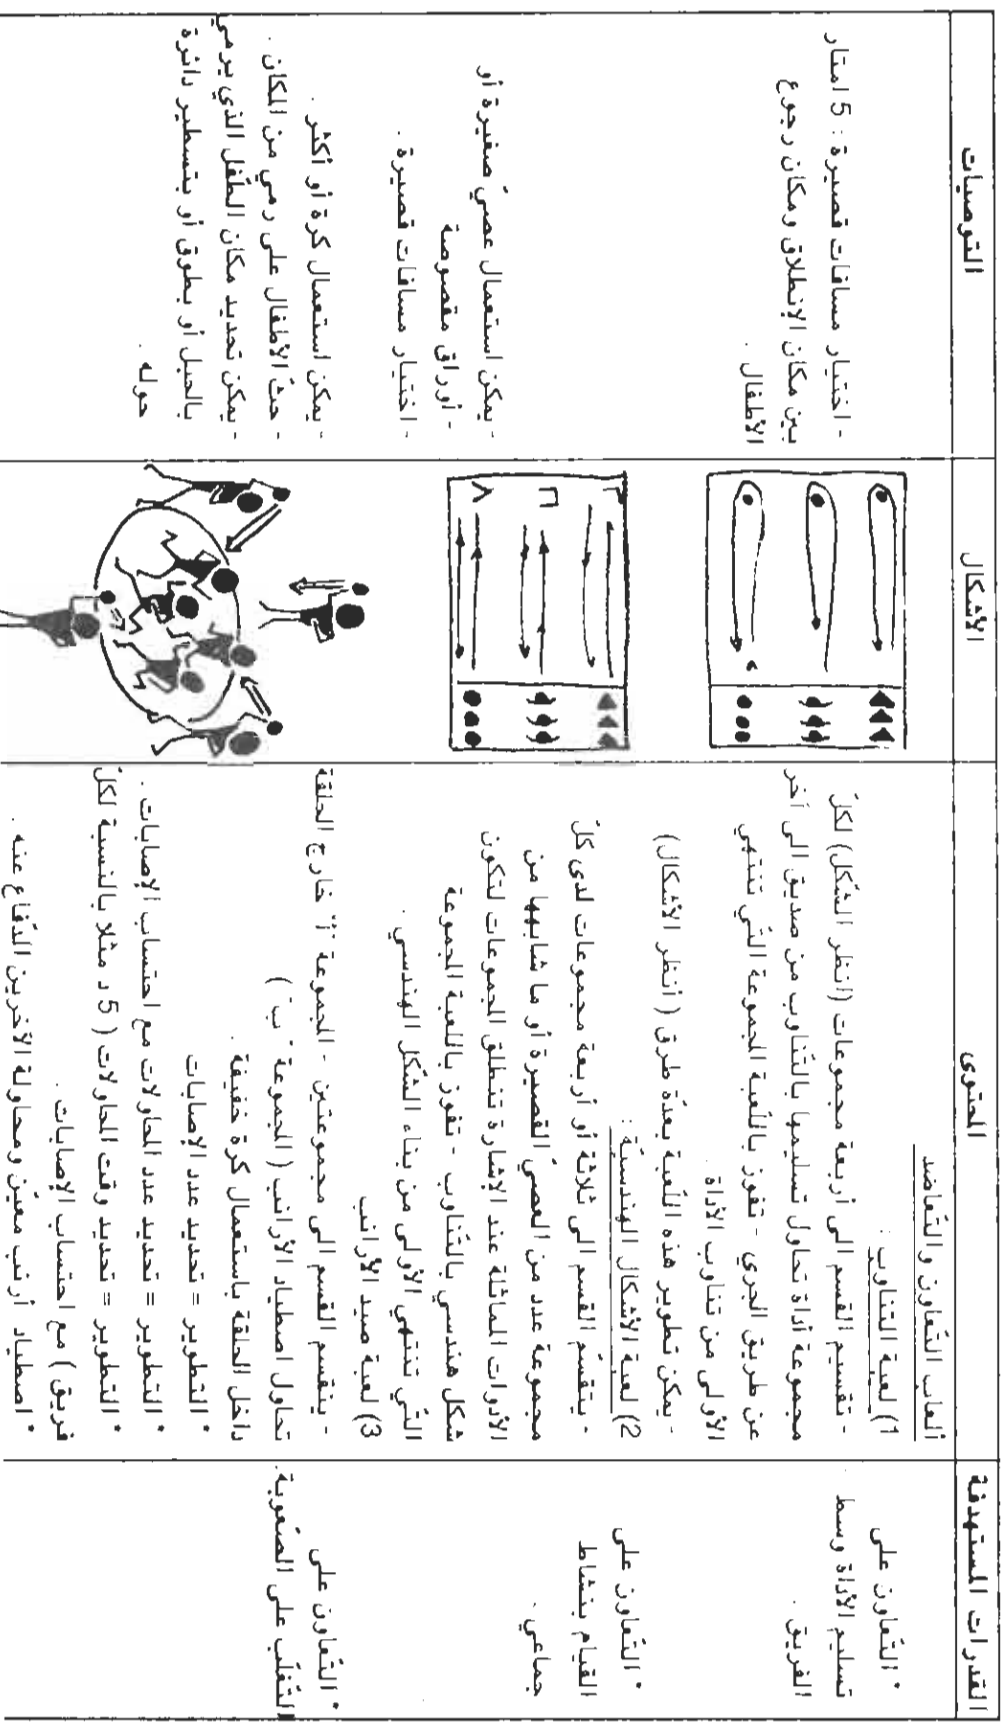 القدرات المستهدفة
المحتوى
الأشكال
التوصيات
* التّعاون على
تسليم الأداة وسط
الفريق .
* التّعاون على
القيام بنشاط
جماعي .
* التّعاون على
التّغلّب على الصّعوبة.
ألعاب التّعاون والتّعاضد
1) لعبة التناوب :
- تقسيم القسم الى أربعة مجموعات (أنظر الشّكل) لكلّ
مجموعة أداة تحاول تسليمها بالتّناوب من صديق الى آخر
عن طريق الجري - تفوز باللّعبة المجموعة التّي تنتهي
الأولى من تناوب الأداة .
- يمكن تطوير هذه اللّعبة بعدّة طرق (أنظر الأشكال)
2) لعبة الأشكال الهندسيّة :
- يتقسّم القسم الى ثلاثة أو أربعة مجموعات لدى كلّ
مجموعة عدد من العصيّ القصيرة أو ما شابهها من
الأدوات المماثلة عند الإشارة تنطلق المجموعات لتكون
شكل هندسي بالتّناوب - تفوز باللعبة المجموعة
التّي تنتهي الأولى من بناء الشّكل الهندسي .
3) لعبة صيد الأرانب
- ينقسم القسم الى مجموعتين - المجموعة "أ" خارج الحلقة
تحاول اصطياد الأرانب ( المجموعة "ب" )
داخل الحلقة باستعمال كرة خفيفة .
* التطوير = تحديد عدد الإصابات
* التطوير = تحديد عدد المحاولات مع احتساب الإصابات .
* التطوير = تحديد وقت المحاولات ( 5 د مثلا بالنسبة لكلّ
فريق ) مع احتساب الإصابات .
* اصطياد أرنب معيّن ومحاولة الآخرين الدّفاع عنه .
- اختيار مسافات قصيرة : 5 امتار
بين مكان الإنطلاق ومكان رجوع
الأطفال .
- يمكن استعمال عصيّ صغيرة أو
- أوراق مقصوصة
- اختيار مسافات قصيرة .
- يمكن استعمال كرة أو أكثر .
- حثّ الأطفال على رمي من المكان .
- يمكن تحديد مكان الطّفل الذي يرمي
بالحبل أو بطوق أو بتسطير دائرة
حوله .